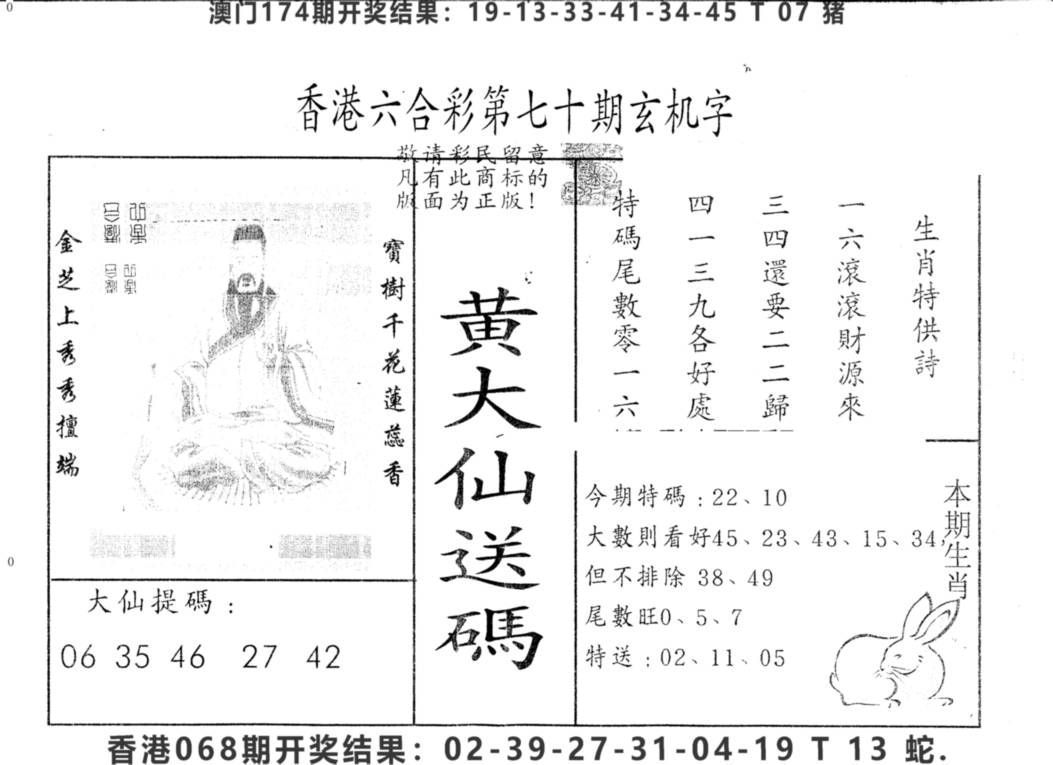 澳门174期开奖结果：19-13-33-41-34-45 T 07 猪
香港六合彩第七十期玄机字
敬请彩民留意
凡有此商标的
版面为正版！
寶樹千花蓮蕊香
金芝上秀秀擅端
黄大仙送碼
生肖特供詩
一六滾滾財源來
三四還要二二歸
四一三九各好處
特碼尾數零一六
大仙提碼：
06 35 46 27 42
今期特碼：22、10
大數則看好45、23、43、15、34,
但不排除 38、49
尾數旺0、5、7
特送：02、11、05
本期生肖
香港068期开奖结果：02-39-27-31-04-19 T 13 蛇.